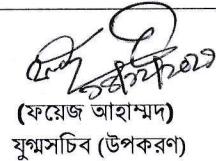 (ফয়েজ আহাম্মদ)
যুগ্মসচিব (উপকরণ)